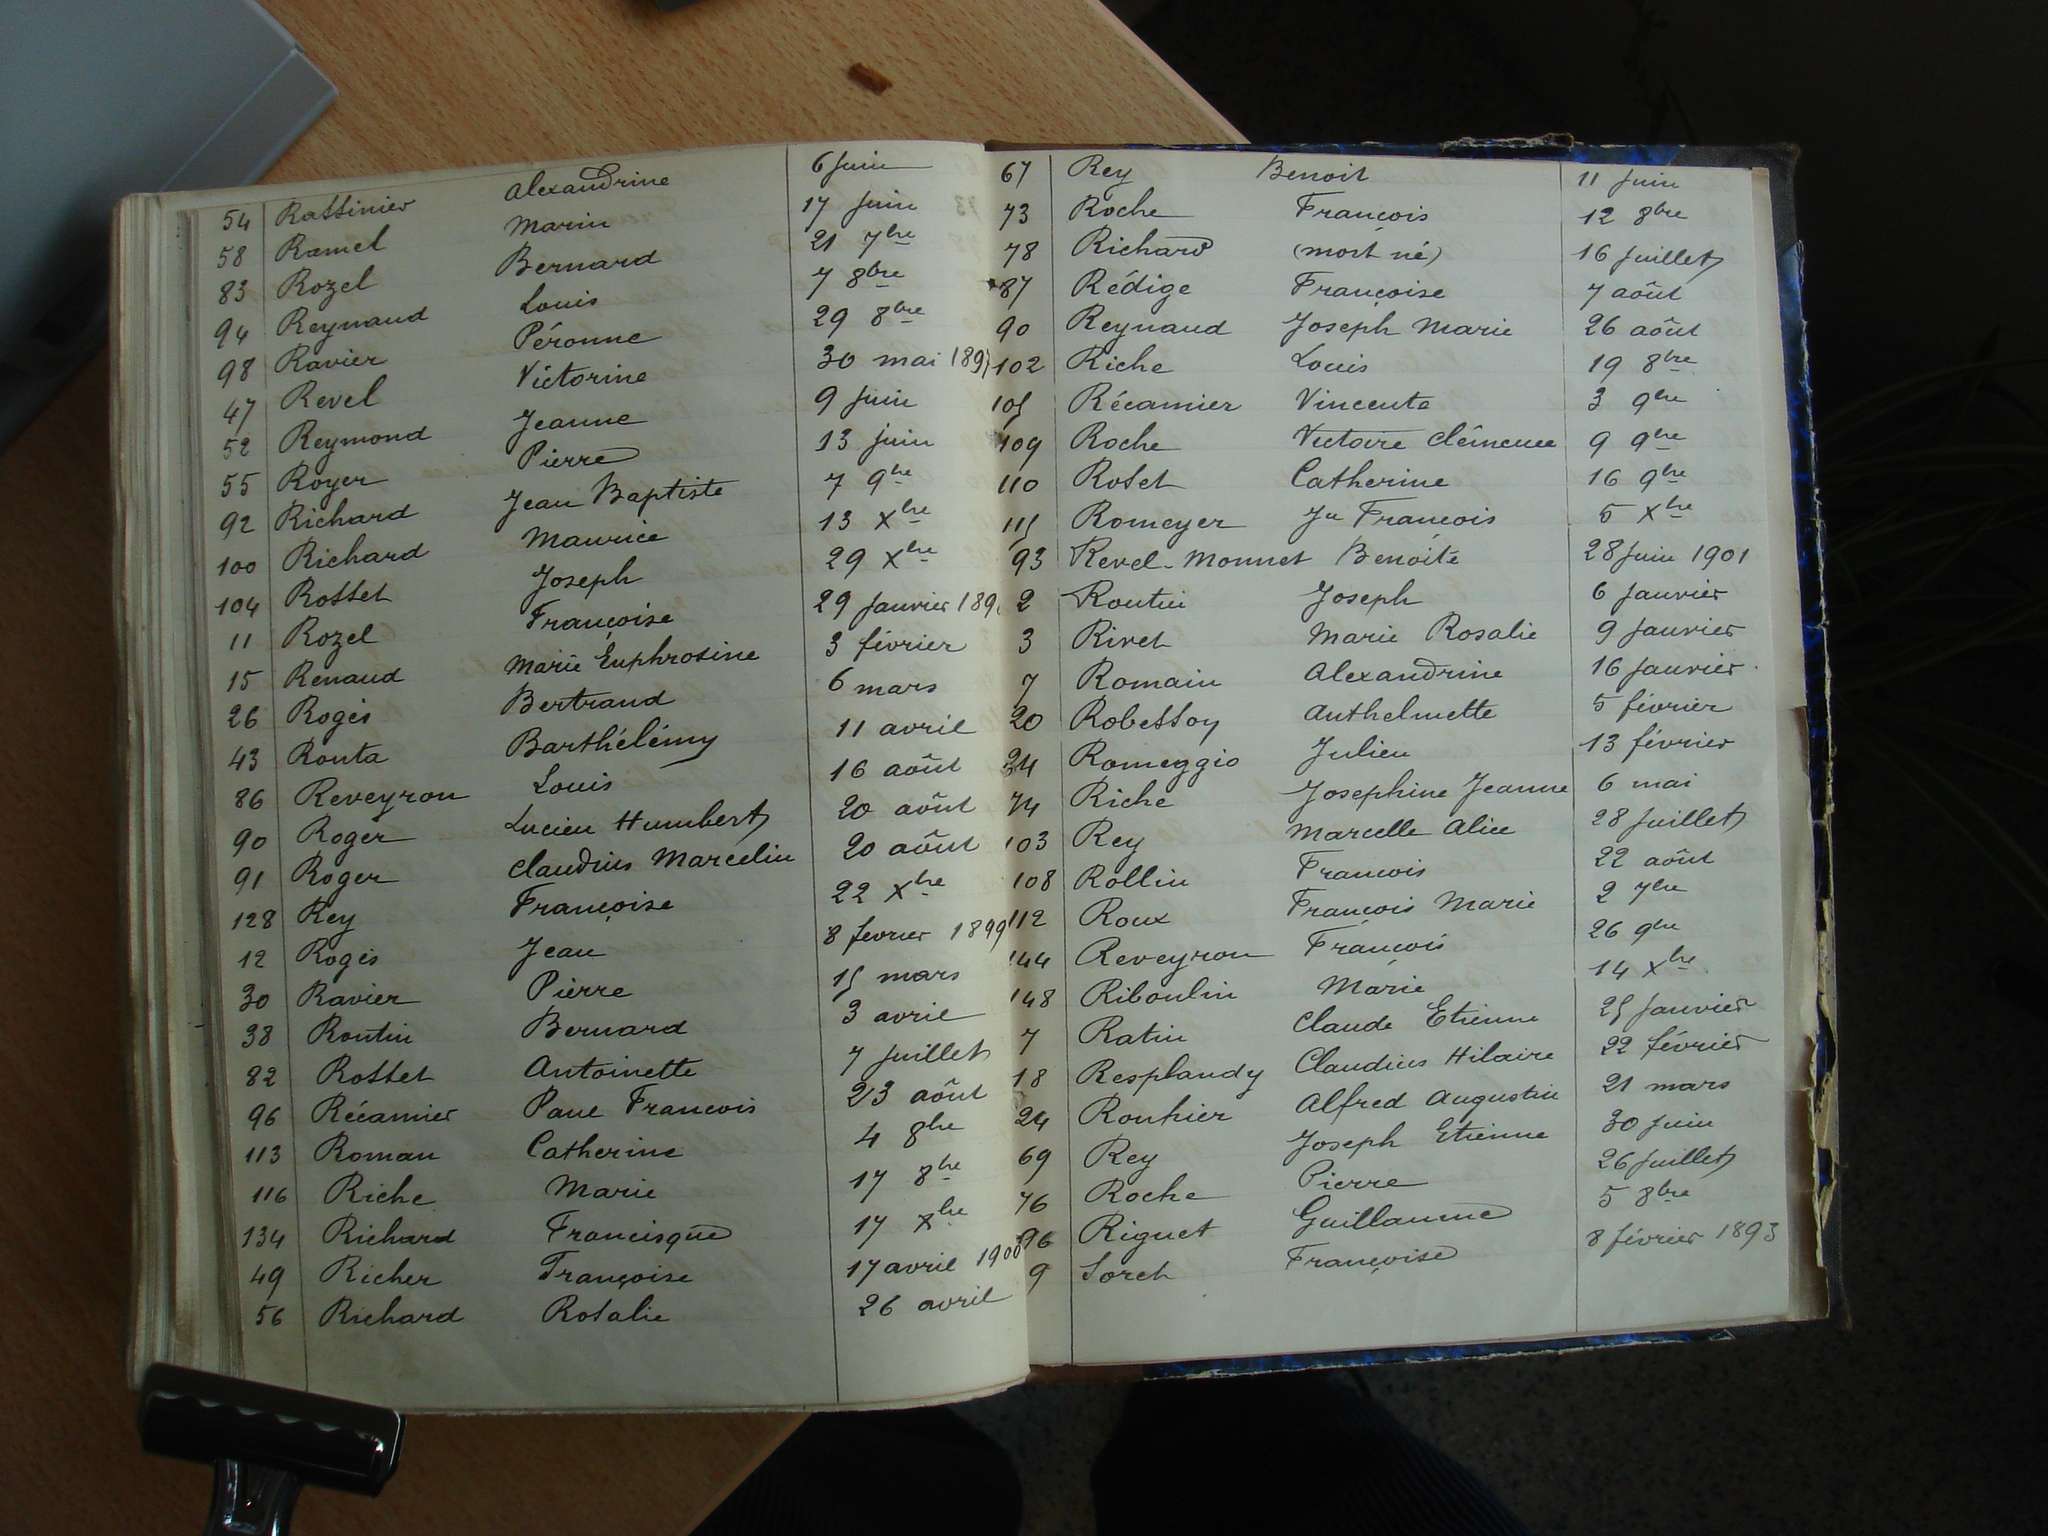 54 Rassinier Alexandrine 6 Juin
58 Ramel Marin 17 Juin
83 Rozel Bernard 21 7bre
94 Reynaud Louis 7 8bre
98 Ravier Péronne 29 8bre
47 Revel Victorine 30 mai
52 Reymond Jeanne 9 Juin
55 Royer Pierre 13 juin
92 Richard Jean Baptiste 7 9bre
100 Richard Maurice 13 Xbre
104 Rosset Joseph 29 Xbre
11 Rozel Françoise 29 Janvier
15 Renaud Marie Euphrosine 3 février
26 Rogès Bertrand 6 mars
43 Routa Barthélémy 11 avril
86 Reveyron Louis 16 août
90 Roger Lucien Humbert 20 août
91 Roger Claudius Marcelin 20 août
128 Rey Françoise 22 Xbre
12 Rogès Jean 8 février 1899
30 Ravier Pierre 15 mars
38 Routin Bernard 3 avril
82 Rosset Antoinette 7 Juillet
96 Récamier Paul François 23 août
113 Roman Catherine 4 8bre
116 Riche Marie 17 8bre
134 Richard Francisque 17 Xbre
49 Richer Françoise 17 avril 1900
56 Richard Rosalie 26 avril
67 Rey Benoit 11 Juin
73 Roche François 12 8bre
78 Richard (mort né) 16 Juillet
87 Rédige Françoise 7 août
90 Reynaud Joseph Marie 26 août
102 Riche Louis 19 8bre
105 Récamier Vincente 3 9bre
109 Roche Victoire Clémence 9 9bre
110 Roset Catherine 16 9bre
115 Romeyer Jn François 5 Xbre
93 Revel-Monnet Benoite 28 Juin 1901
2 Routin Joseph 6 Janvier
3 Rivet Marie Rosalie 9 Janvier
7 Romain Alexandrine 16 Janvier
20 Robessoy Anthelmette 5 février
24 Romeggio Julien 13 février
74 Riche Josephine Jeanne 6 mai
103 Rey Marcelle Alice 28 Juillet
108 Rollin François 22 août
112 Roux François Marie 2 7bre
144 Reveyron François 26 9bre
148 Riboulin Marie 14 Xbre
7 Ratin Claude Etienne 25 Janvier
18 Resplandy Claudius Hilaire 22 février
24 Rouhier Alfred Augustin 21 mars
69 Rey Joseph Etienne 30 Juin
76 Roche Pierre 26 Juillet
96 Riguet Guillaume 5 8bre
9 Soret Françoise 8 février 1893